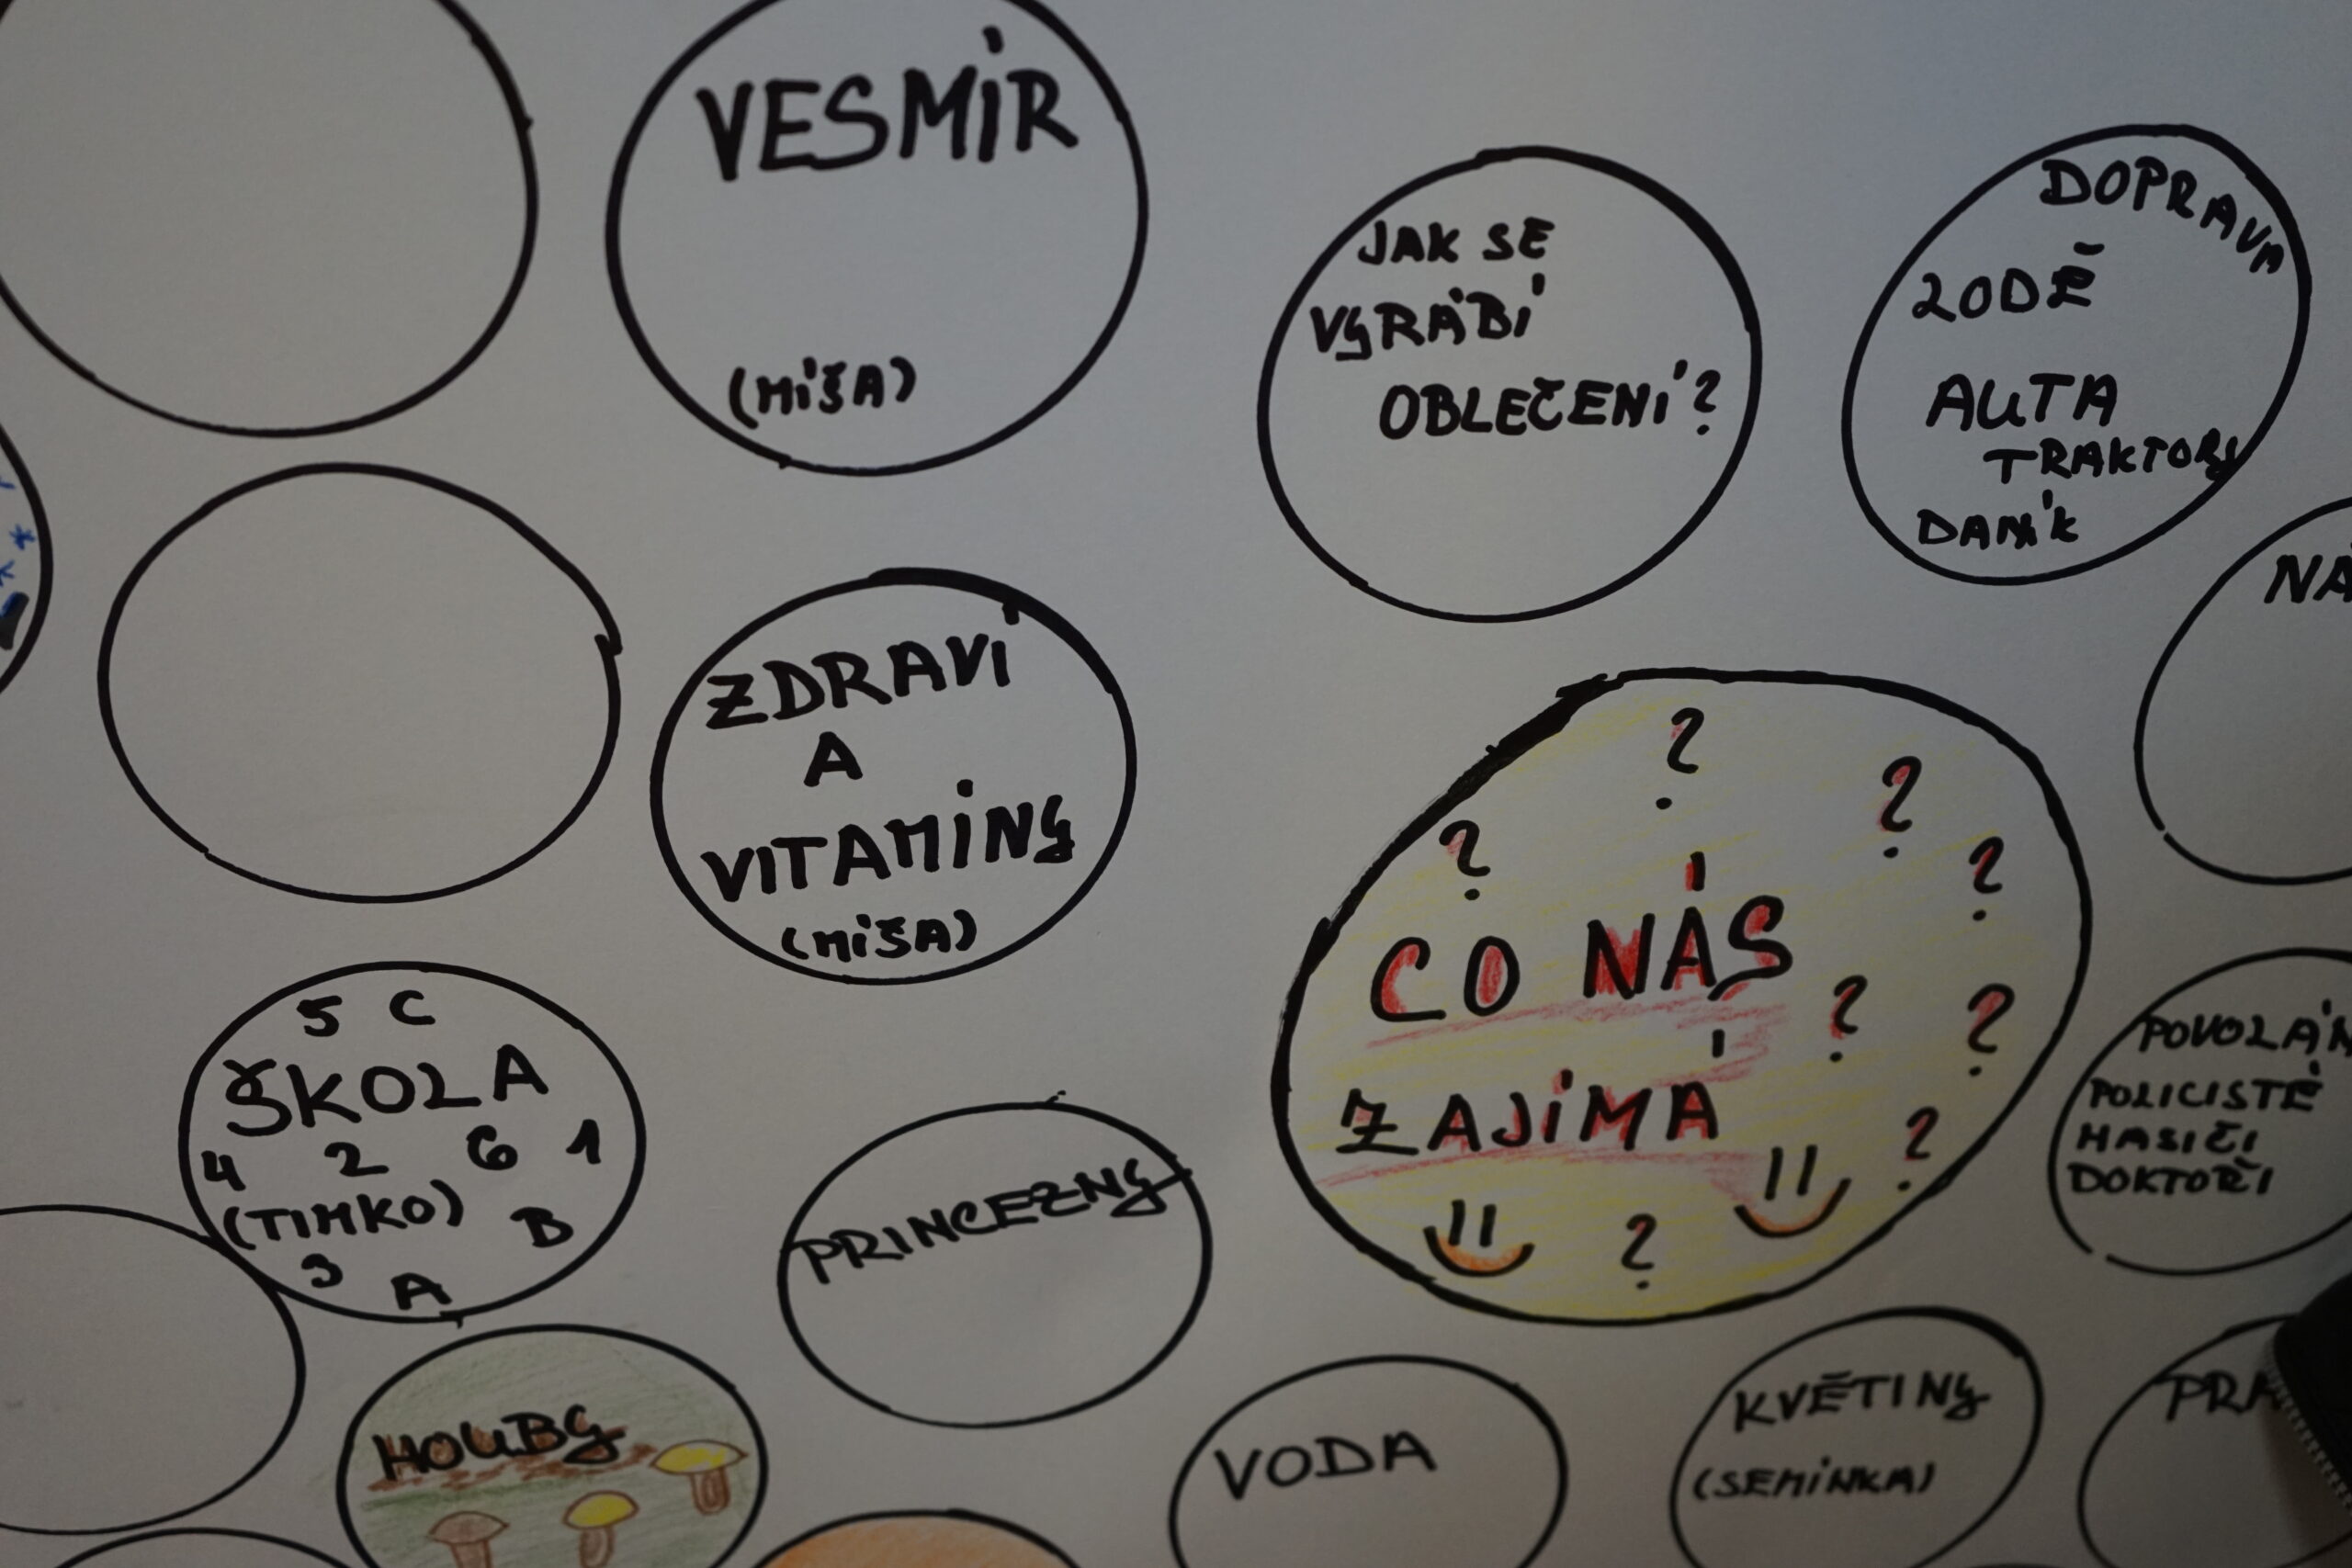 VESMÍR
(MÍŠA)
JAK SE
VYRÁBÍ
OBLEČENÍ?
DOPRAVA
LODĚ
AUTA
TRAKTORY
DANÍK
ZDRAVÍ
A
VITAMÍNY
(MÍŠA)
CO NÁS
ZAJÍMÁ
? ? ? ? ? ? ? ?
5 C
ŠKOLA
4 2 6 1
(TIMKO) B
3 A
PRINCEZNY
POLICISTÉ
HASIČI
DOKTOŘI
HOUBY
VODA
KVĚTINY
(SEMÍNKA)